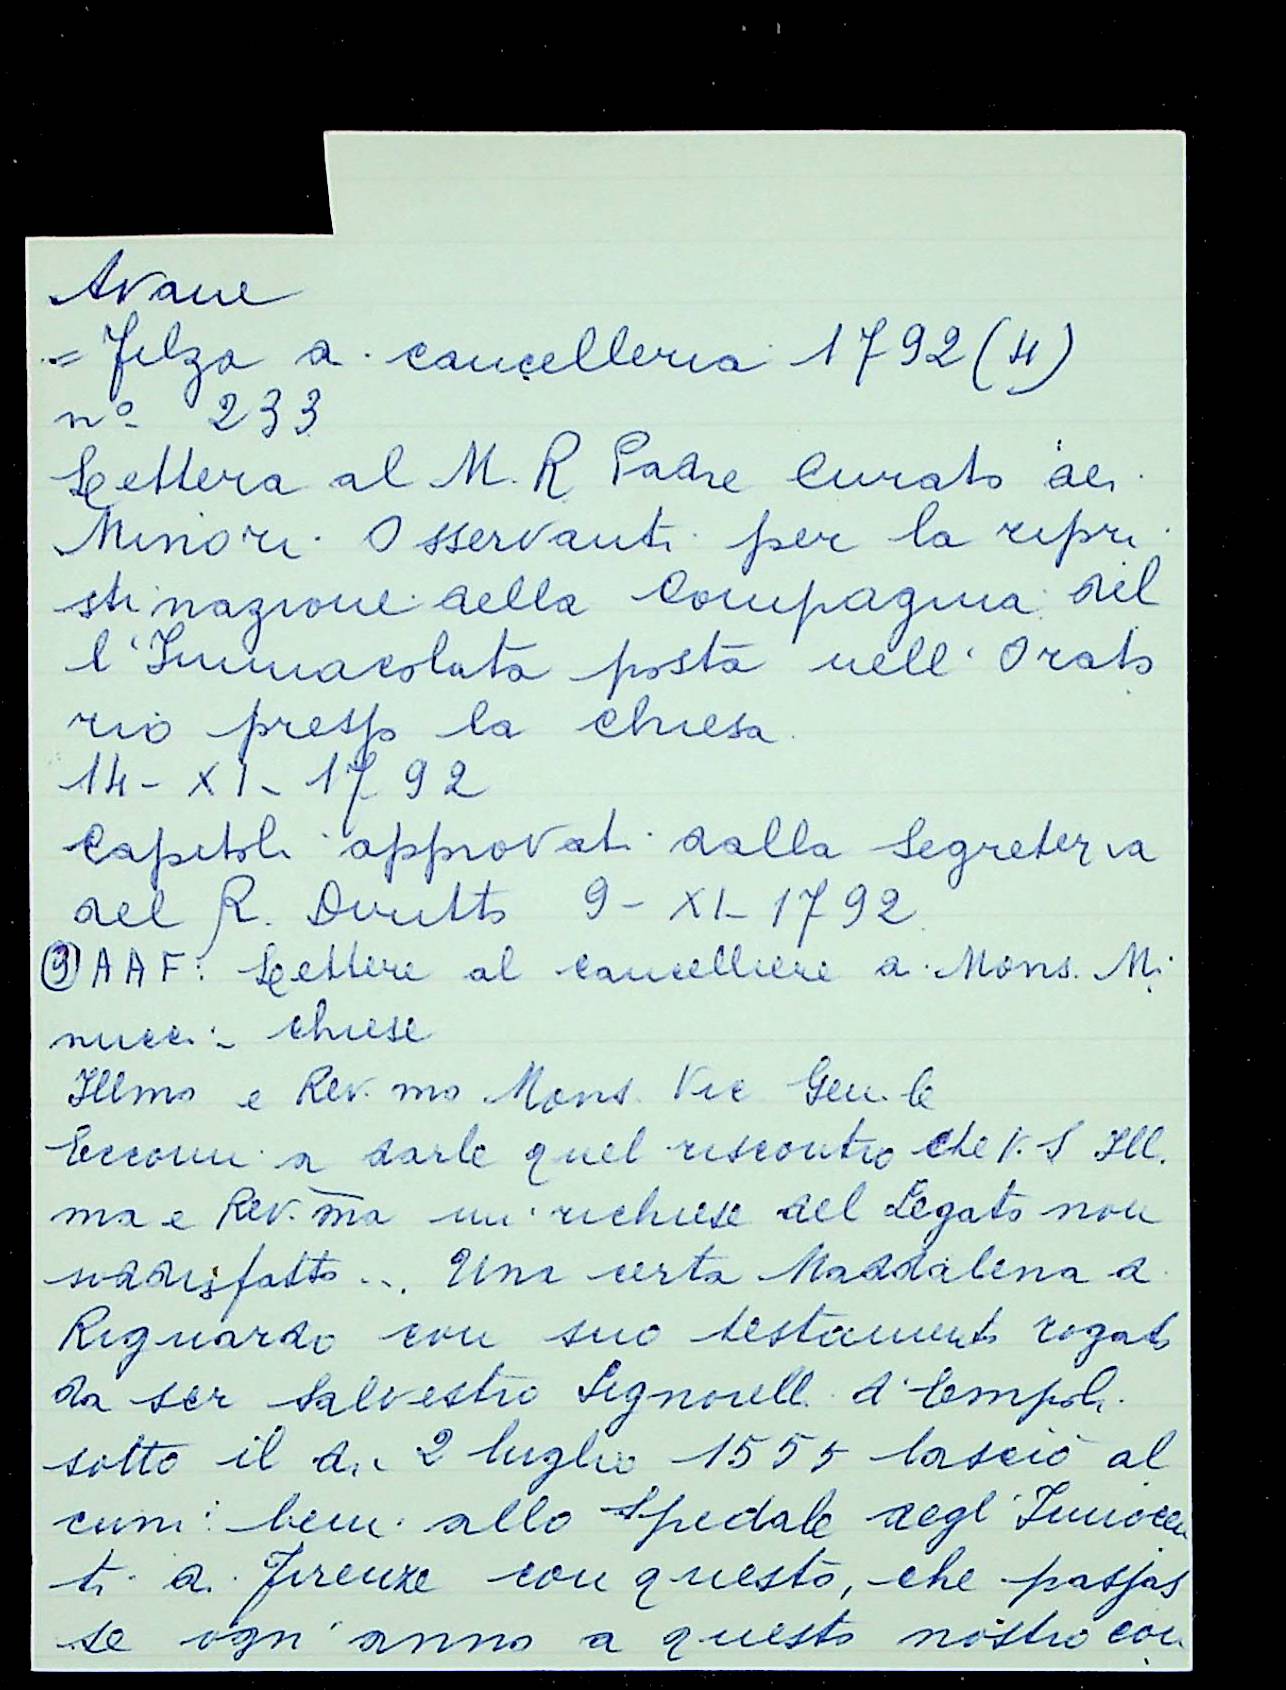 Avane
= Filza di cancelleria 1792 (4)
nº 233
Lettera al M. R Padre Curato dei
Minori Osservanti per la ripri
stinazione della Compagnia del
l'Immacolata posta nell'Orato
rio presso la chiesa
14-XI-1792
Capitoli approvati dalla Segreteria
del R. Diritto 9-XI-1792
⑨ AAF: Lettere al cancelliere di Mons. Mi
nucci - chiese
Illmo e Rev.mo Mons. Vic Gen.le
Eccomi a darle quel riscontro che V. S Ill.
ma e Rev.ma mi richiese del Legato non
soddisfatto... Una certa Maddalena di
Riguardo con suo testamento rogato
da ser Salvestro Signorelli d'Empoli
sotto il di 2 luglio 1555 lasciò al
cuni beni allo Spedale degl'Innocen
ti di Firenze con questo, che passas
se ogn'anno a questo nostro con